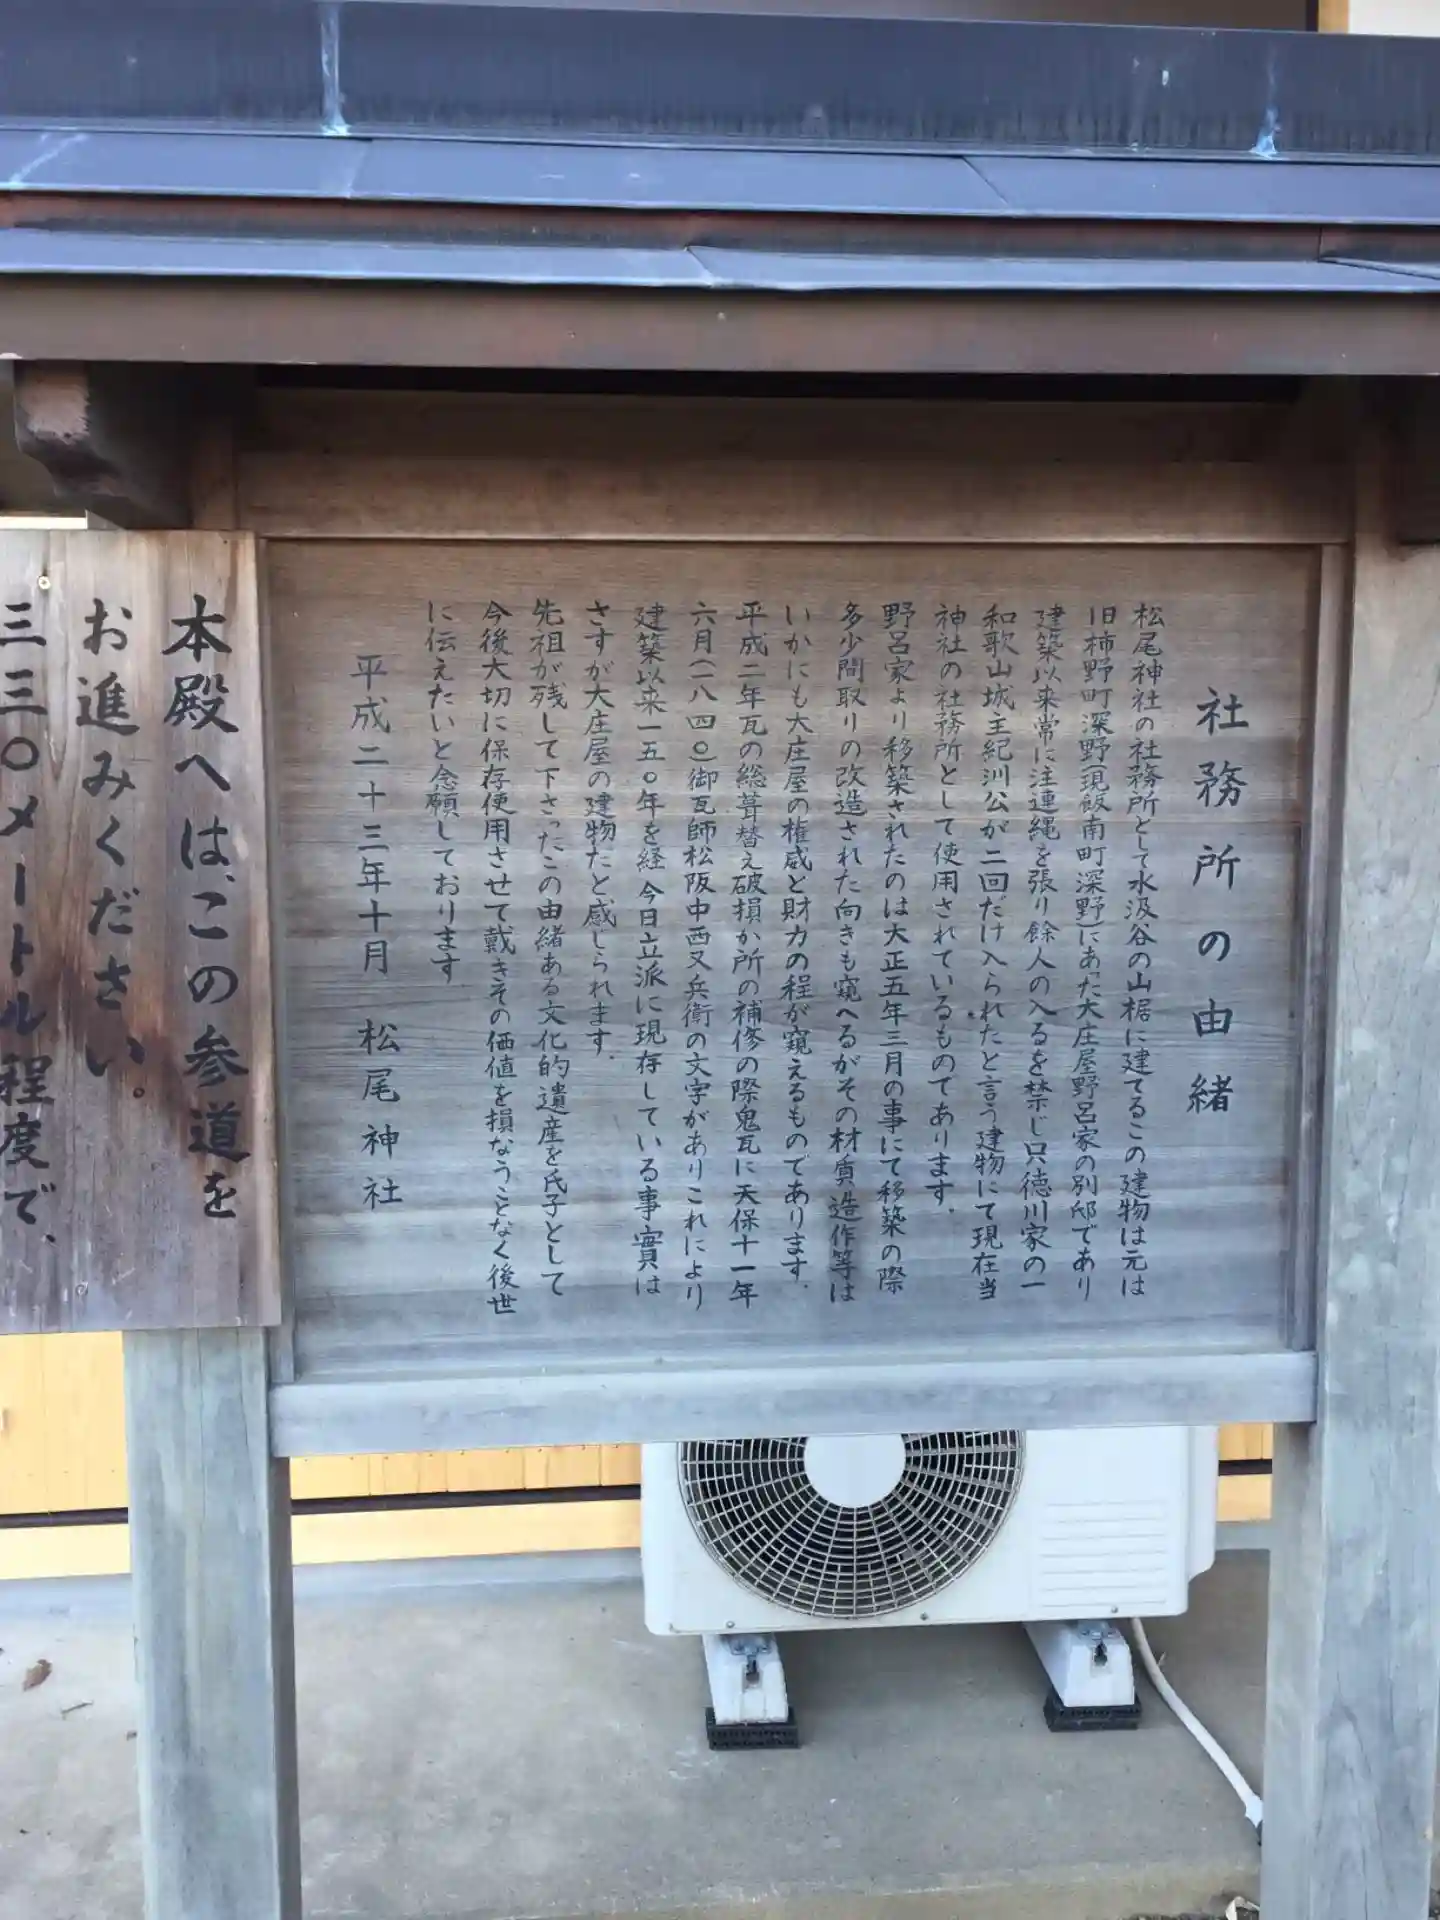 社務所の由緒
松尾神社の社務所として水汲谷の山裾に建てるこの建物は元は
旧柿野町深野(現飯南町深野)にあった大庄屋野呂家の別邸であり
建築以来常に注連縄を張り餘人の入るを禁じ只徳川家の一
和歌山城主紀州公が二回だけ入られたと言う建物にて現在当
神社の社務所として使用されているものであります.
野呂家より移築されたのは大正五年三月の事にて移築の際
多少間取りの改造された向きも窺へるがその材質造作等は
いかにも大庄屋の権威と財力の程が窺えるものであります.
平成二年瓦の総葺替え破損か所の補修の際鬼瓦に天保十一年
六月(一八四〇)御瓦師松阪中西又兵衛の文字がありこれにより
建築以来一五〇年を経今日立派に現存している事實は
さすが大庄屋の建物だと感じられます.
先祖が残して下さったこの由緒ある文化的遺産を氏子として
今後大切に保存使用させて戴きその価値を損なうことなく後世
に伝えたいと念願しております
平成二十三年十月 松尾神社
本殿へは、この参道を
お進みください。
三三〇メートル程度で、